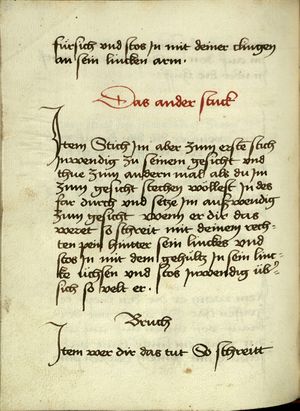 fürsich vnd stos In mit deiner clingen
an sein lincken arm ·
Das ander stuck
Item Stich im aber zum erste stich
Inwendig zu seinem gesicht vnd
thue zum andern mal als du im
zum gesicht stechen wöllest In des
far durch vnd setze im auswendig
zum gesicht wenn er dir das
weret so schreit mit deinem rech-
ten pein hinter sein linckes vnd
stos in mit dem gehültz in sein linc-
ke üchsen vnd stos Inwendig üb'
sich so velt er ·
Bruch
Item wer dir das tut So schreitt